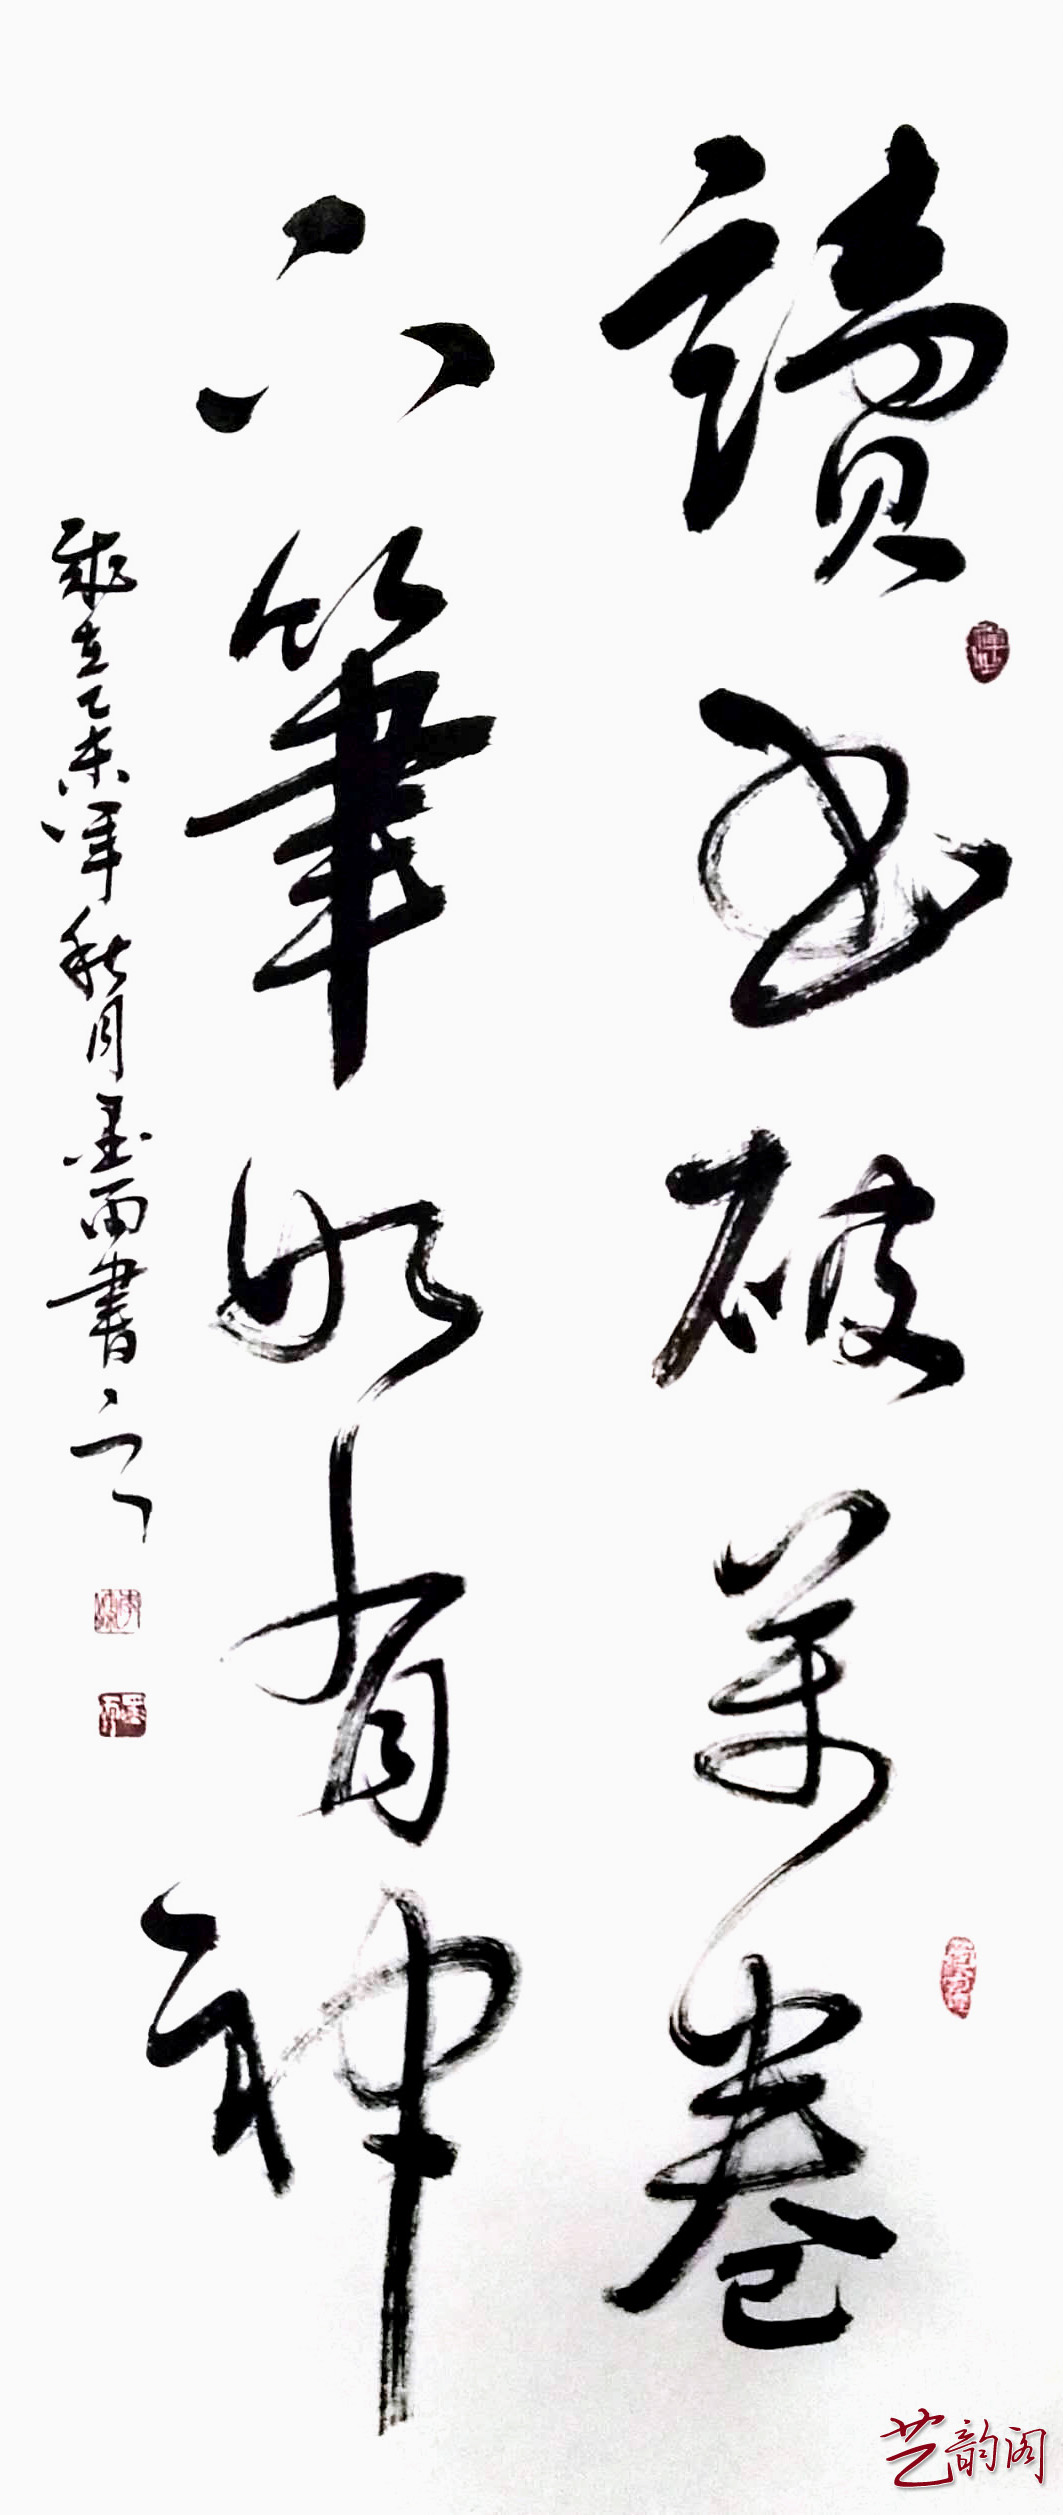 讀书破萬卷
下筆如有神
歲在乙未年秋月墨雨書之
艺韵阁